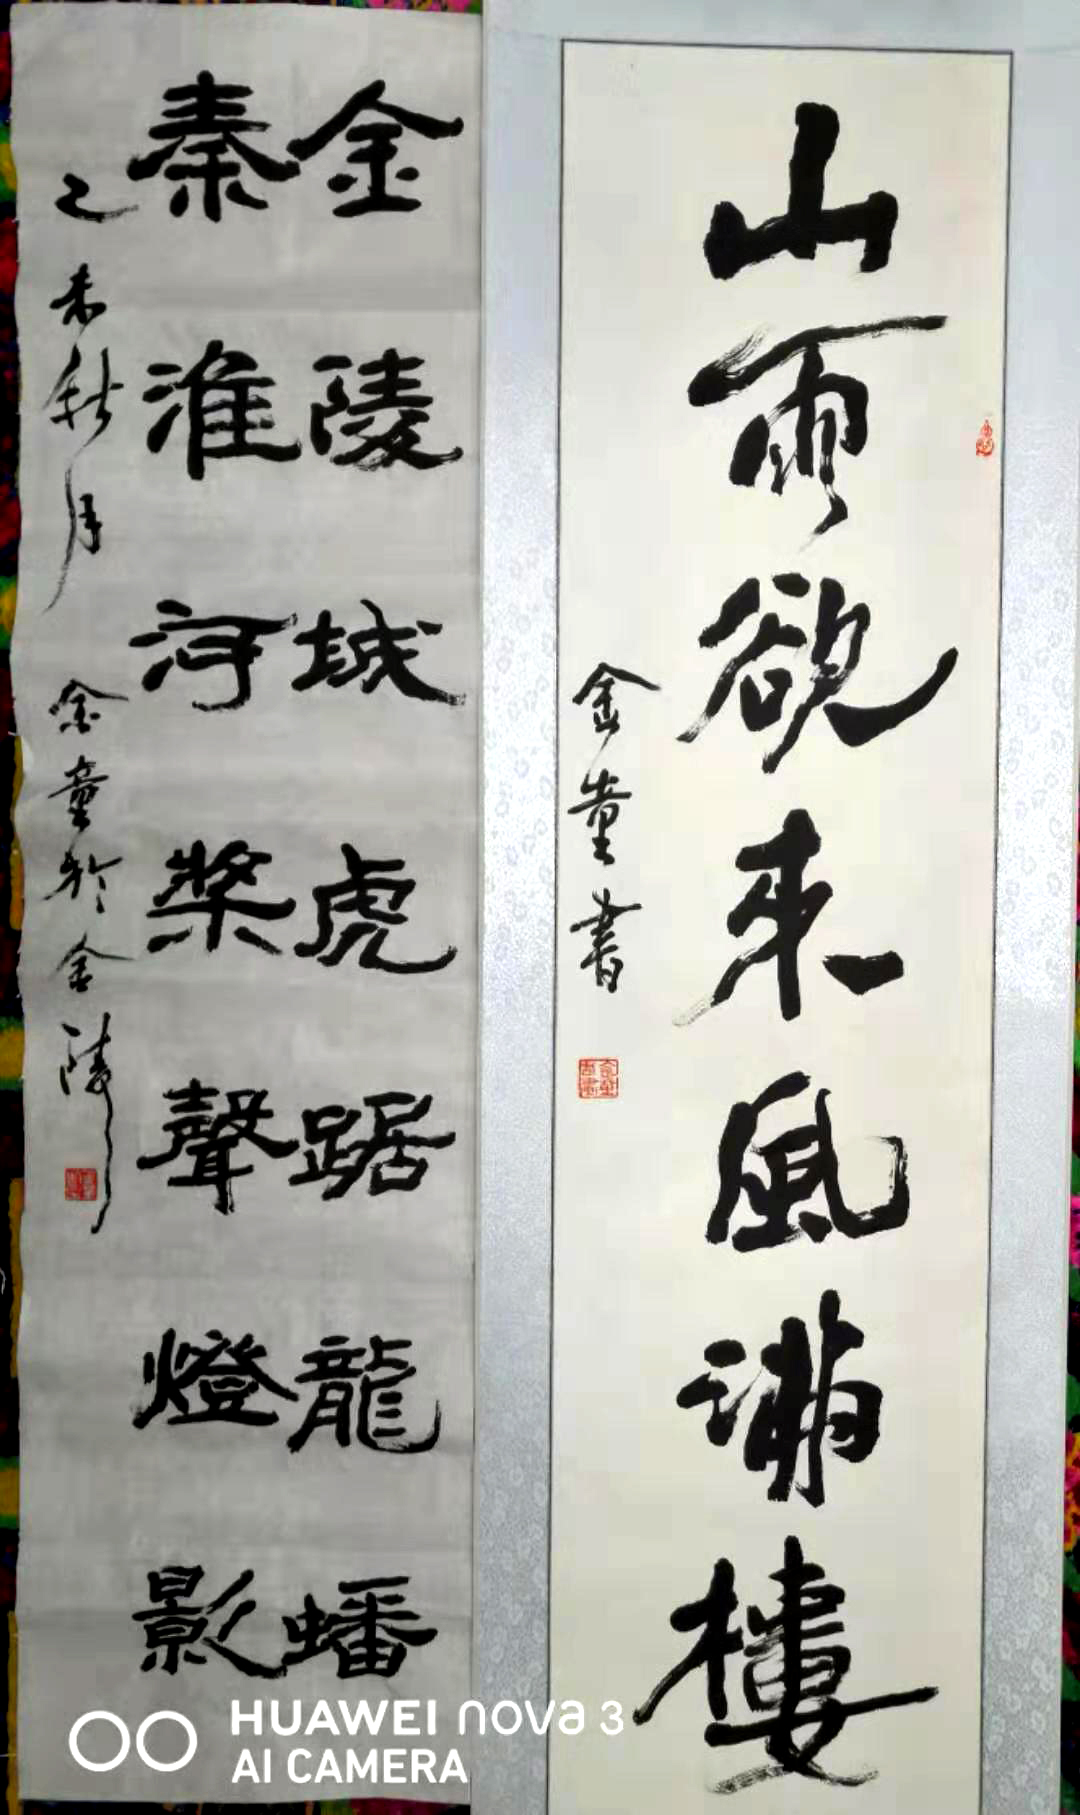 山雨欲来風满樓
金童書
金陵城虎踞龍蟠
秦淮河槳聲燈影
乙未秋月 金童於金陵
HUAWEI nova 3
AI CAMERA